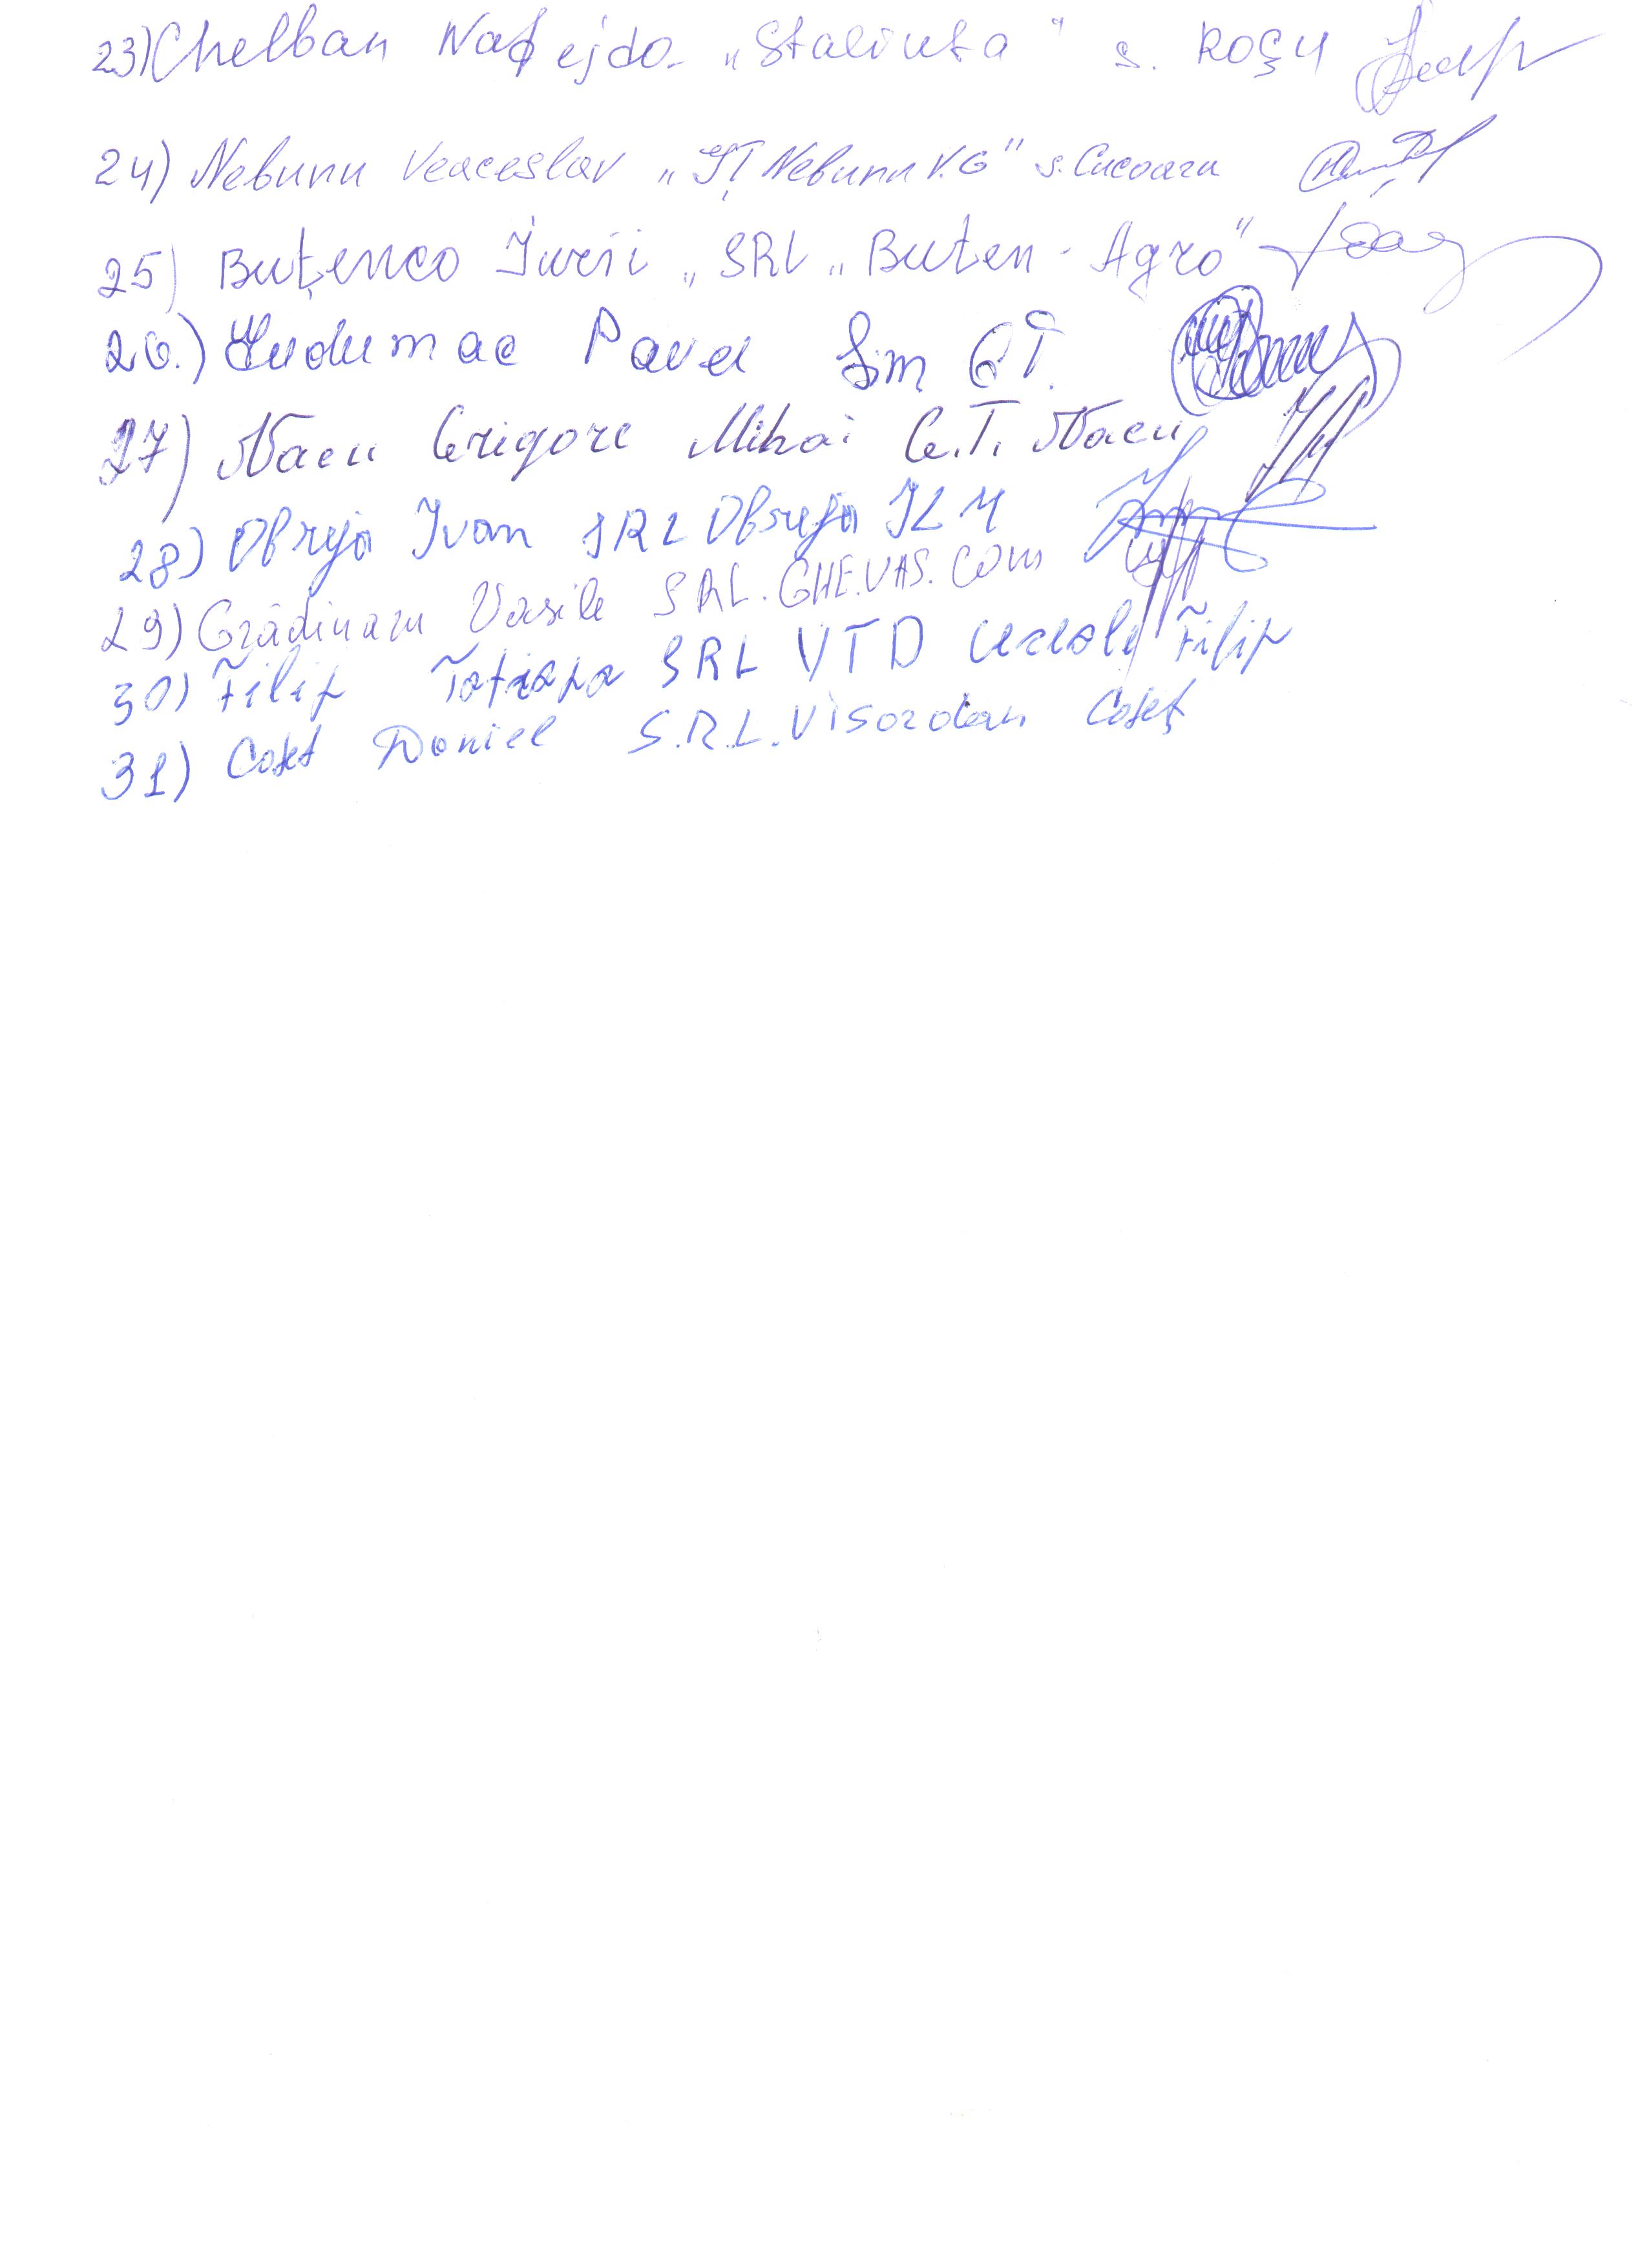 23) Chelban Nadejda „Stalinta" s. Roșu
24) Nebunu Veaceslav „ÎT Nebunu V.G" s. Cucoara
25) Buțenco Iurii „SRL „Buten - Agro"
26.) Pavel G.T.
27) Nacu Grigore Mihai G.T. Nacu
28) Obreja Ivan SRL Obreja ILM
29) Grădinaru Vasile SRL. GHE.VAS. COM
30) Filip Tatiana SRL VTD Filip
31) Coset Daniel S.R.L. Visordan Coseț